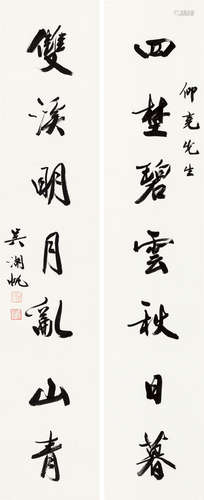 仰尧先生
四埜碧雲秋日暮
雙溪明月亂山青
吴湖帆